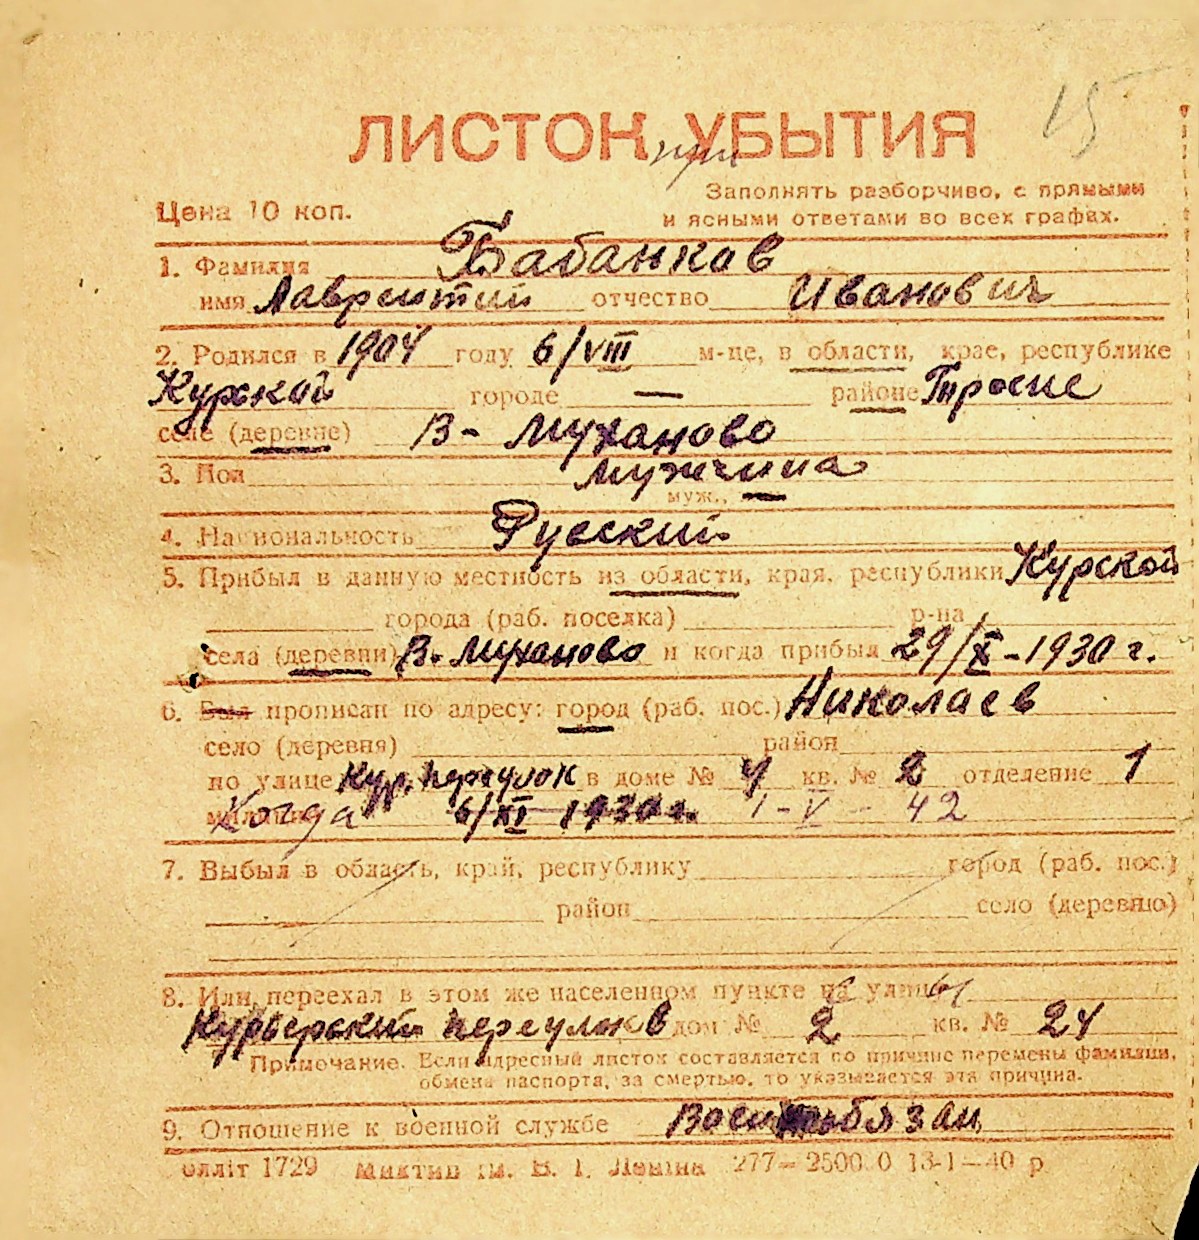 15
ЛИСТОК УБЫТИЯ
Цена 10 коп.
Заполнять разборчиво, с прямыми
и ясными ответами во всех графах.
1. Фамилия Бабанков
имя Лаврентий отчество Иванович
2. Родился в 1904 году 6/VIII м-це, в области, крае, республике
Курской городе — районе Тросне
селе (деревне) В- Муханово
3. Пол мужчина
муж.,
4. Национальность Русский
5. Прибыл в данную местность из области, края, республики Курской
города (раб. поселка) р-на
села (деревни) В. Муханово и когда прибыл 29/X-1930 г.
6. Был прописан по адресу: город (раб. пос.) Николаев
село (деревня) район
по улице Кур. переулок в доме № 4 кв. № 2 отделение 1
милиции Когда 6/XI 1930 г. 1-V-42
7. Выбыл в область, край, республику город (раб. пос.)
район село (деревню)
8. Или переехал в этом же населенном пункте на улицу
Курьерский переулок дом № 2 кв. № 24
Примечание. Если адресный листок составляется по причине перемены фамилии,
обмена паспорта, за смертью, то указывается эта причина.
9. Отношение к военной службе Военнообязан
облліт 1729 Миктип ім. В. І. Леніна 277—2500 0 13-1—40 р